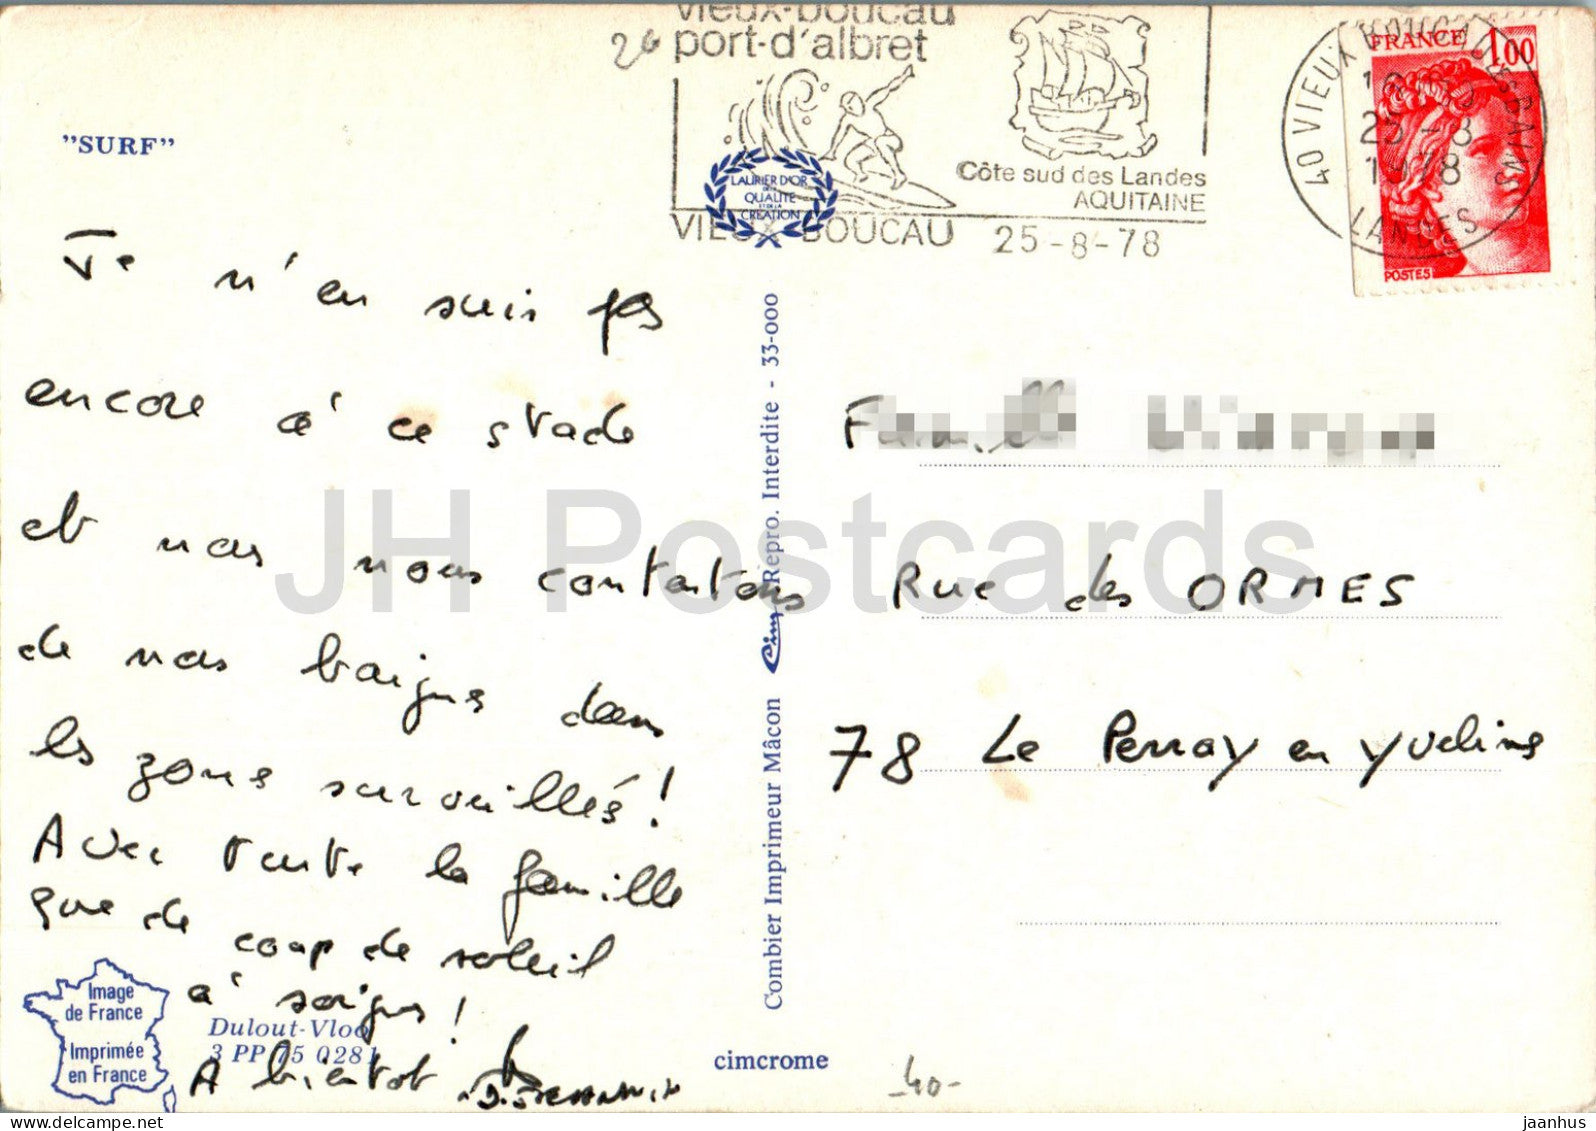 vieux-boucau
26 port-d'albret
Côte sud des Landes
AQUITAINE
VIEUX-BOUCAU 25-8-78
40 VIEUX BOUCAU LES BAINS
25-8
1978
LANDES
FRANCE 1,00
POSTES
"SURF"
LAURIER D'OR
QUALITÉ
CRÉATION
Je n'en suis pas
encore à ce stade
et nous nous contentons
de nos baignes dans
les zones surveillés !
Avec toute la famille
que de coup de soleil
à soignes !
A bientot
Image
de France
Imprimée
en France
Dulout-Vloo
3 PP 75 0281
Combier Imprimeur Mâcon Cim Repro. Interdite - 33-000
cimcrome
Rue des ORMES
78 Le Perray en Yvelines
40-
JH Postcards
jaanhus
www.delcampe.net